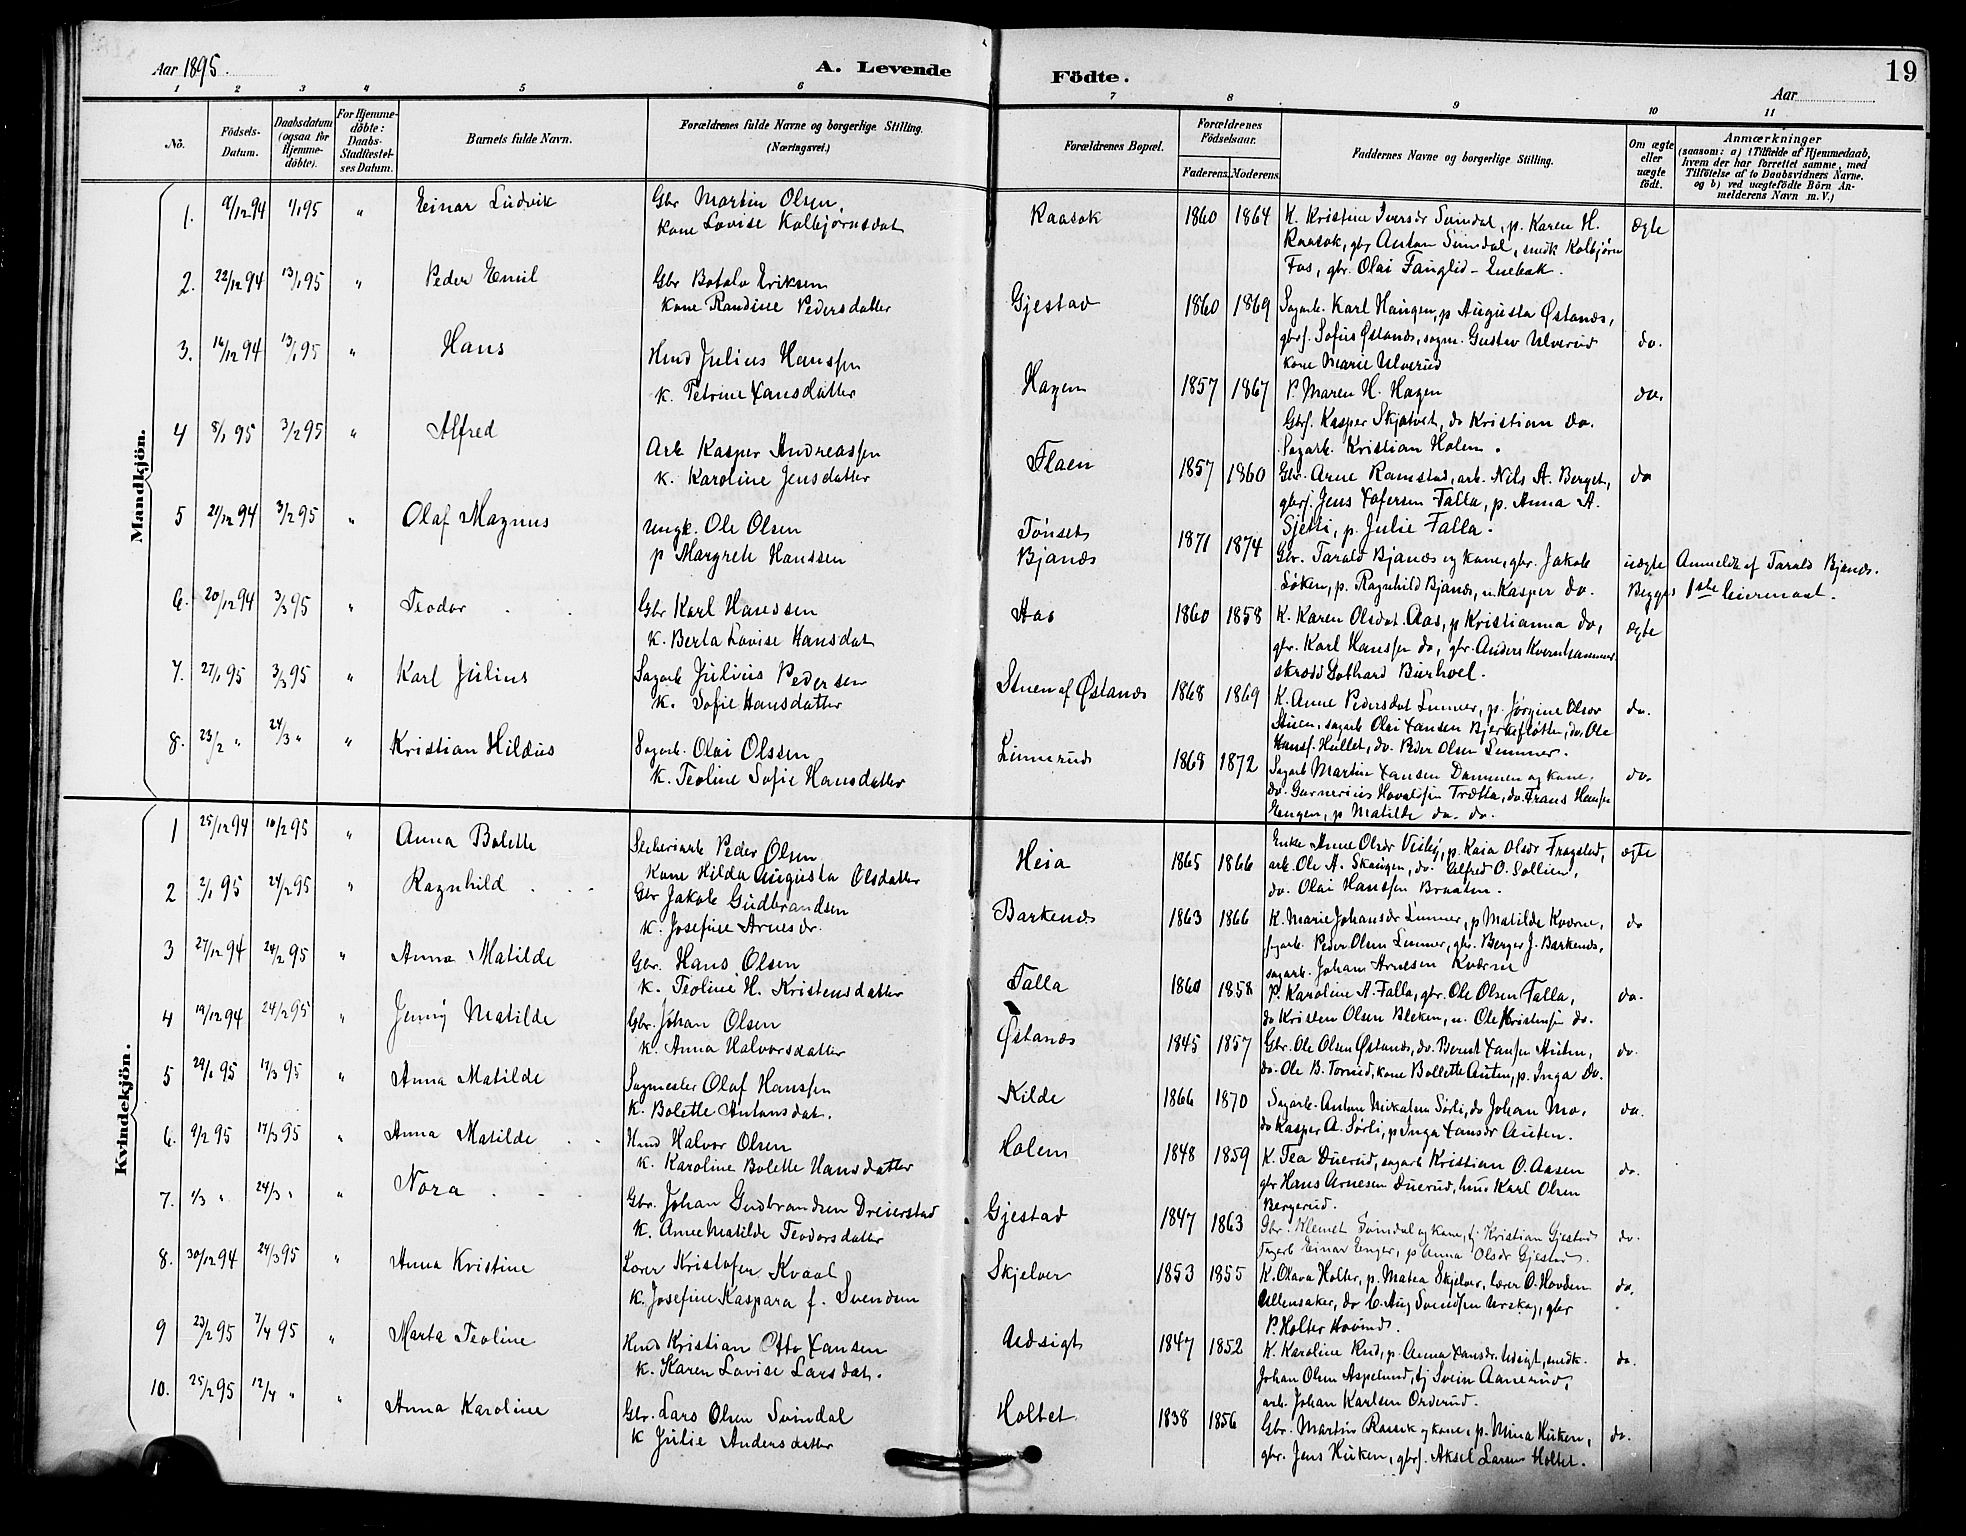 Aar 1895
A. Levende Födte.
19
Aar
1 2 3 4 5 6 7 8 9 10 11
No.
Födsels-Datum.
Daabsdatum (ogsaa for Hjemmedöbte).
For Hjemmedöbte: Daabs-Stadfestelses Datum.
Barnets fulde Navn.
Forældrenes fulde Navne og borgerlige Stilling.
(Næringsvei.)
Forældrenes Bopæl.
Forældrenes Födselsaar.
Faderens. Moderens.
Faddernes Navne og borgerlige Stilling.
Om ægte eller uægte födt.
Anmærkninger
(saasom: a) i Tilfælde af Hjemmedaab,
hvem der har forrettet samme, med
Tilföielse af to Daabsvidners Navne.
og b) ved uægtefödte Börn Anmelderens Navn m. V.)
Mandkjön.
1. 9/12 94 1/1 95 " Einar Ludvik Gbr Martin Olsen, Raasok 1860 1864 K. Kristine Iversdr Svindal, p. Karen H. Ægte
Kone Lovise Kolbjørnsdat Raasok, gbr Anton Svindal, smedk Kolbjørn
Fos, gbr. Olai Fanglid - Enebak.
2. 22/12 94 13/1 95 " Peder Emil Gbr Botolv Eriksen Gjestad 1860 1869 Sagarb. Karl Haugen, p Augusta Østanæs,
Kone Randine Pedersdatter gbrs. Sofus Østanæs, sagm. Gustav Ulverud do.
kone Marie Ulverud
3. 16/12 94 13/1 95 " Hans Hmd Julius Hanssen Hagen 1857 1867 P. Maren H. Hagen do.
K. Petrine Hansdatter Gbrs. Kasper Skjatvet, do Kristian do.
Sagarb. Kristian Holem.
4 8/1 95 3/2 95 " Alfred Arb Kasper Andreassen Flaen 1857 1860 Gbr. Arne Ramstad, arb. Nils A. Berget, do
K. Karoline Jensdatter gbrs. Jens Tofersen Falla, p. Anna A.
Sjetli, p. Julie Falla.
5 21/12 94 3/2 95 " Olaf Magnus Ungk. Ole Olsen Tønset 1871 1874 Gbr. Tarald Bjanæs og kone, gbr. Jakob uægte Anmeldt af Tarald Bjanæs.
p Margrete Hanssen Bjanæs Løken, p. Ragnhild Bjanæs, u. Kasper do. Begges 1ste leiermaal.
6. 20/12 94 3/3 95 " Teodor Gbr Karl Hanssen Aas 1860 1858 K. Karen Olsdat. Aas, p Kristianna do, ægte
K. Berta Lovise Hansdat gbr. Karl Hanssen do, gbr. Anders Kvernhammer
skrædd Gothard Burhoel.
7. 27/1 95 3/3 95 " Karl Julius Sagarb Julius Pedersen Stuen af Østanæs 1868 1869 K. Anne Pedersdat Limmer, p. Jørgine Olsdr do.
K. Sofie Hansdatter Stuen, sagarb Olai Hansen Bjerkefløtten, do. Ole
Hanss. Hullet, do. Peder Olsen Limmer.
8. 23/2 " 24/3 " " Kristian Hildus Sagarb. Olai Olssen Linnerud 1868 1872 Sagarb Martin Hansen Dammen og kone, do.
K. Teoline Sofie Hansdatter do. Gunerius Hovelssen Trætta, do. Frans Hansen
Engen, p Matilde do. do.
Kvindekjön.
1 25/12 94 10/2 95 " Anna Bolette Sliberiarb Peder Olsen Heia 1865 1866 Enke Anne Olsdr Veiby, p. Kaia Olsdr Fragstad, ægte
Kone Hilda Augusta Olsdatter arb. Ole A. Skaugen, do. Alfred O. Sollien,
do. Olai Hanssen Braaten.
2 2/1 95 24/2 95 " Ragnhild Gbr Jakob Gudbrandsen Barkenæs 1863 1866 K. Marie Johansdr Limmer, p Matilde Kværne, do
K. Josefine Arnesdr. sagarb. Peder Olsen Limmer, gbr. Berger J. Barkenæs,
sagarb. Johan Arnesen Kværne
3 27/12 94 24/2 95 " Anna Matilde Gbr. Hans Olsen Falla 1860 1858 P. Karoline A. Falla, gbr. Ole Olsen Falla, do.
K. Teoline H. Kristensdatter do Kristen Olsen Bleken, u. Ole Kristensen do.
4 19/12 94 24/2 95 " Jenny Matilde Gbr. Johan Olsen Østanæs 1845 1857 Gbr. Ole Olsen Østanæs, do. Bernt Hansen Auten, do.
K. Anna Halvorsdatter do. Ole B. Tornerud, kone Bollette Auten, p. Inga do.
5 29/1 95 17/3 95 " Anna Matilde Sagmester Olaf Hanssen Kilde 1866 1870 Sagarb. Anton Nickalsen Sørli, do Johan Mo, do.
K. Bolette Antonsdat. do Kasper A. Sørli, p Inga Hansdr Auten.
6. 9/2 95 17/3 95 " Anna Matilde Hmd Halvor Olsen Holem 1848 1859 K. Tea Duerud, sagarb Kristian O. Aasen do.
K. Karoline Bolette Hansdatter gbr Hans Arnesen Duerud, hmd Karl Olsen
Bergerud.
7. 1/3 " 24/3 " " Nora Gbr. Johan Gudbrandsen Dreierstad Gjestad 1847 1863 Gbr. Klemet Svindal og kone, tj Kristian Gjestad do.
K. Anne Matilde Teodorsdatter Sagarb Einar Enger, p Anna Olsdr Gjestad.
8. 30/12 94 24/3 95 " Anna Kristine Lærer Kristofer Kvaal Skjelver 1853 1855 K. Olava Holter, p. Matea Skjelver, lærer O. Hovden do.
K. Josefine Kaspara f. Svendsen Ullensaker, do C. Aug Svendsen Urskog, gbr
P. Holter Hovind.
9 23/2 95 7/4 95 " Marta Teoline Hmd Kristian Otto Hansen Udsigt 1847 1852 K. Karoline Rud, p. Anna Hansdr Udsigt, smedk. do.
K. Karen Lovise Larsdat. Johan Olsen Aspelund, tj Svein Aanerud,
arb. Johan Karlsen Orderud.
10. 25/2 95 12/4 " " Anna Karoline Gbr. Lars Olsen Svindal Holtet 1838 1856 Gbr. Martin Raasok og kone, p. Mina Huken, do.
K Julie Andersdatter gbr. Jens Huken, gbrs. Aksel Larsen Holtet.